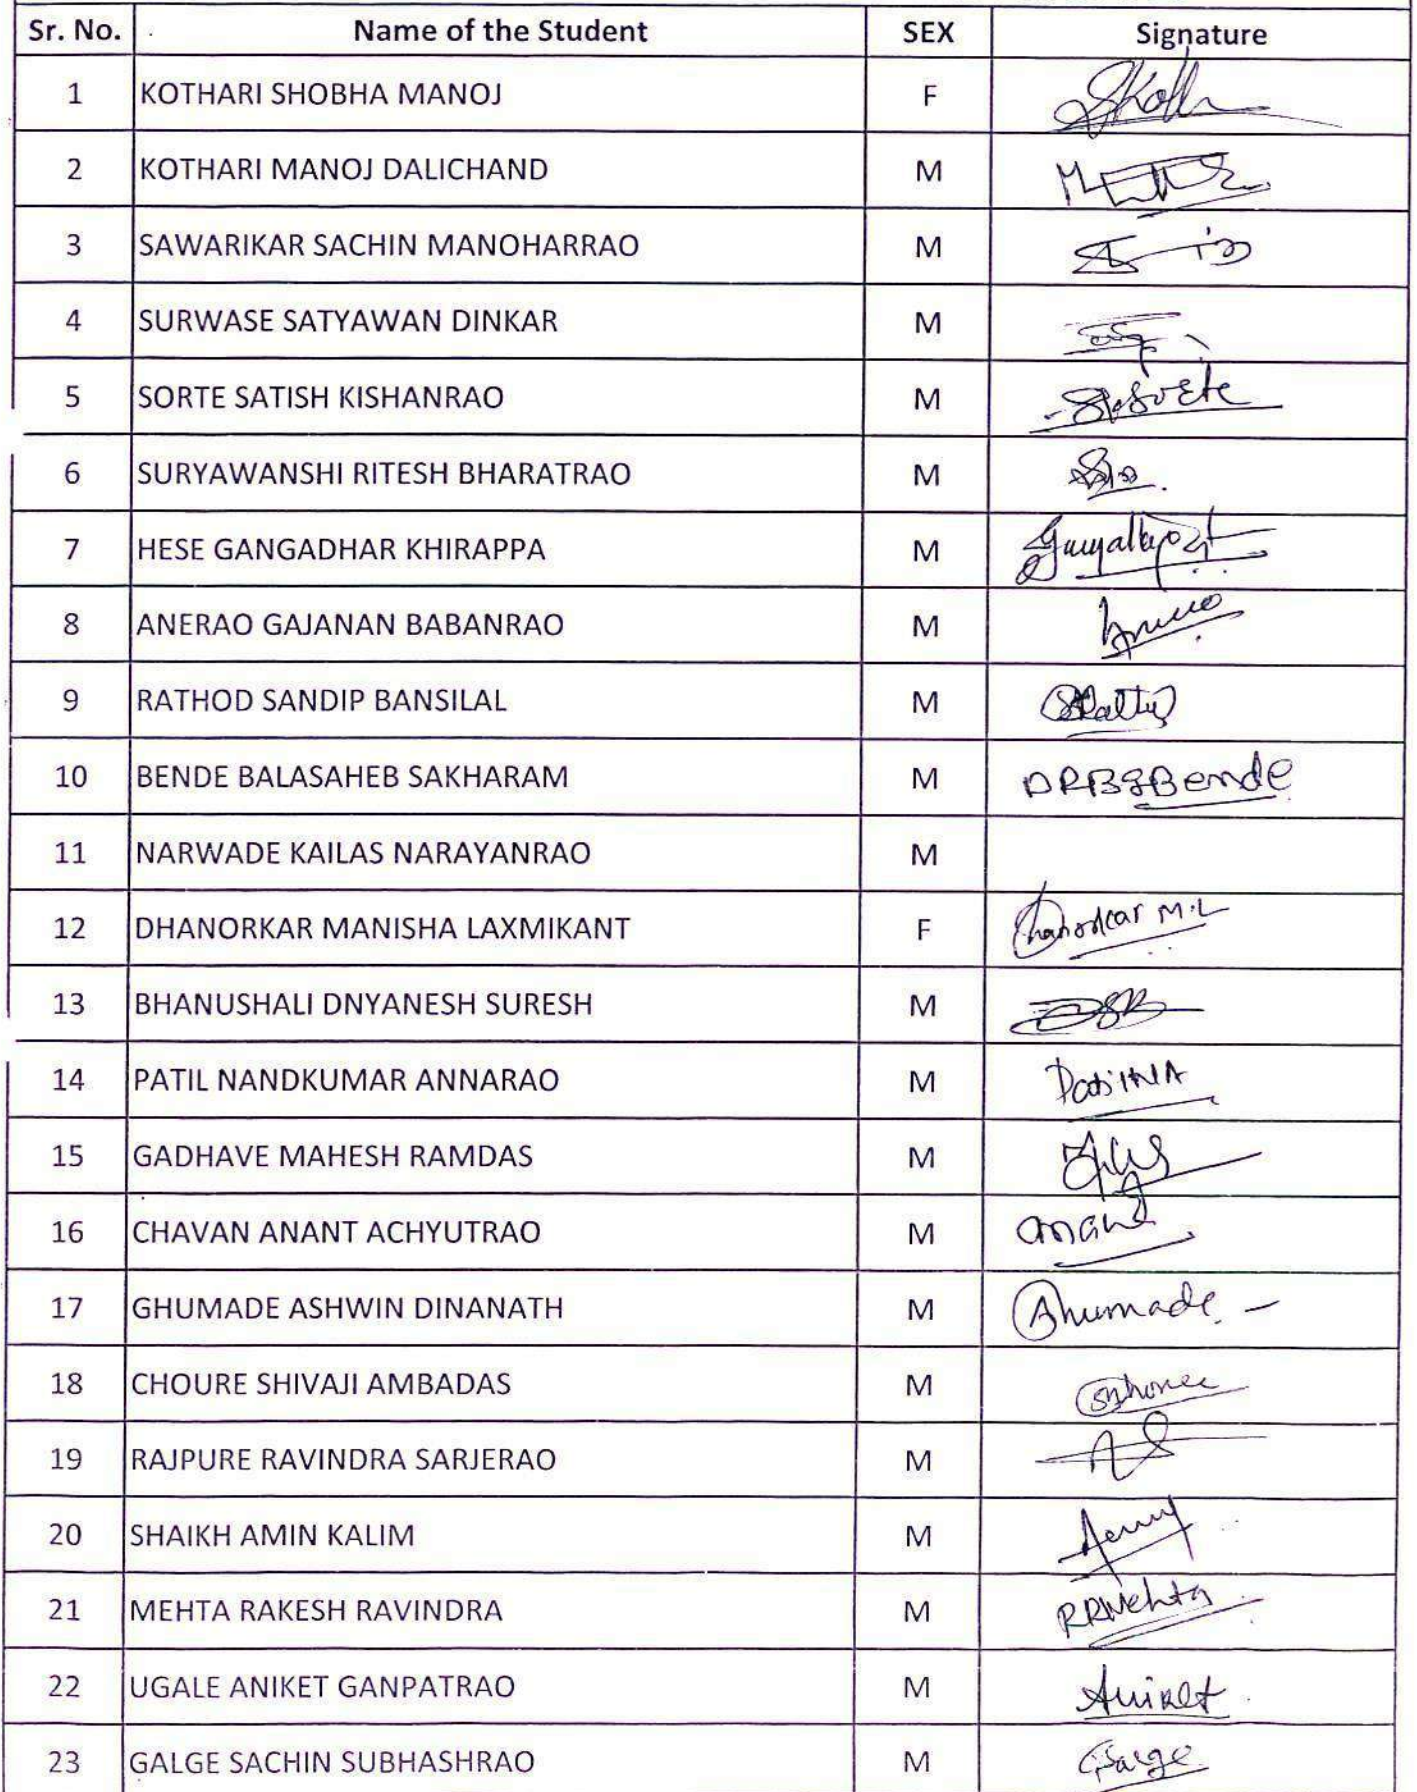 Sr. No. Name of the Student SEX Signature
1 KOTHARI SHOBHA MANOJ F SKoth
2 KOTHARI MANOJ DALICHAND M
3 SAWARIKAR SACHIN MANOHARRAO M
4 SURWASE SATYAWAN DINKAR M
5 SORTE SATISH KISHANRAO M
6 SURYAWANSHI RITESH BHARATRAO M
7 HESE GANGADHAR KHIRAPPA M
8 ANERAO GAJANAN BABANRAO M
9 RATHOD SANDIP BANSILAL M
10 BENDE BALASAHEB SAKHARAM M DRBSBende
11 NARWADE KAILAS NARAYANRAO M
12 DHANORKAR MANISHA LAXMIKANT F Dhanorkar M.L
13 BHANUSHALI DNYANESH SURESH M DSB
14 PATIL NANDKUMAR ANNARAO M Patil NA
15 GADHAVE MAHESH RAMDAS M
16 CHAVAN ANANT ACHYUTRAO M
17 GHUMADE ASHWIN DINANATH M Ghumade
18 CHOURE SHIVAJI AMBADAS M
19 RAJPURE RAVINDRA SARJERAO M
20 SHAIKH AMIN KALIM M
21 MEHTA RAKESH RAVINDRA M RRMehta
22 UGALE ANIKET GANPATRAO M Aniket
23 GALGE SACHIN SUBHASHRAO M